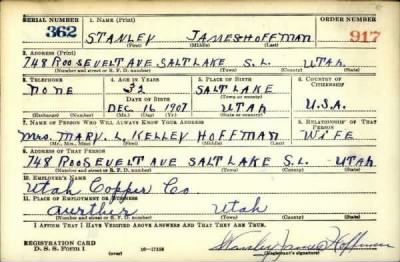 SERIAL NUMBER 1. NAME (Print) ORDER NUMBER
362 STANLEY JAMES HOFFMAN 917
(First) (Middle) (Last)
2. ADDRESS (Print)
748 ROOSEVELT AVE SALT LAKE S.L. UTAH
(Number and street or R. F. D. number) (Town) (County) (State)
3. TELEPHONE 4. AGE IN YEARS 5. PLACE OF BIRTH 6. COUNTRY OF CITIZENSHIP
NONE 32 SALT LAKE
DATE OF BIRTH
DEC 16 1907 UTAH U.S.A.
(Exchange) (Number) (Mo.) (Day) (Yr.) (State or country)
7. NAME OF PERSON WHO WILL ALWAYS KNOW YOUR ADDRESS 8. RELATIONSHIP OF THAT PERSON
Mrs. MARY. L. KELLEY HOFFMAN WIFE
(Mr., Mrs., Miss) (First) (Middle) (Last)
9. ADDRESS OF THAT PERSON
748 ROOSEVELT AVE SALT LAKE S.L. UTAH
(Number and street or R. F. D. number) (Town) (County) (State)
10. EMPLOYER'S NAME
Utah Copper Co.
11. PLACE OF EMPLOYMENT OR BUSINESS
Aurthir Utah
(Number and street or R. F. D. number) (Town) (County) (State)
I AFFIRM THAT I HAVE VERIFIED ABOVE ANSWERS AND THAT THEY ARE TRUE.
REGISTRATION CARD
D. S. S. Form 1 (over) 16-17105 Stanley James Hoffman
(Registrant's signature)